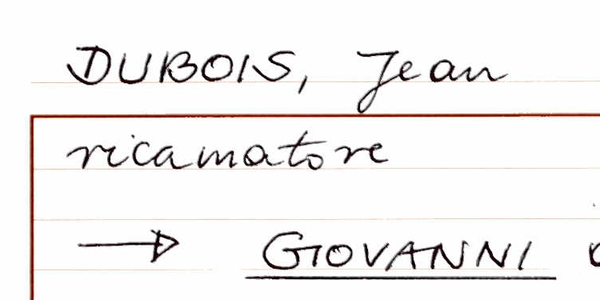 DUBOIS, Jean
ricamatore
→ GIOVANNI